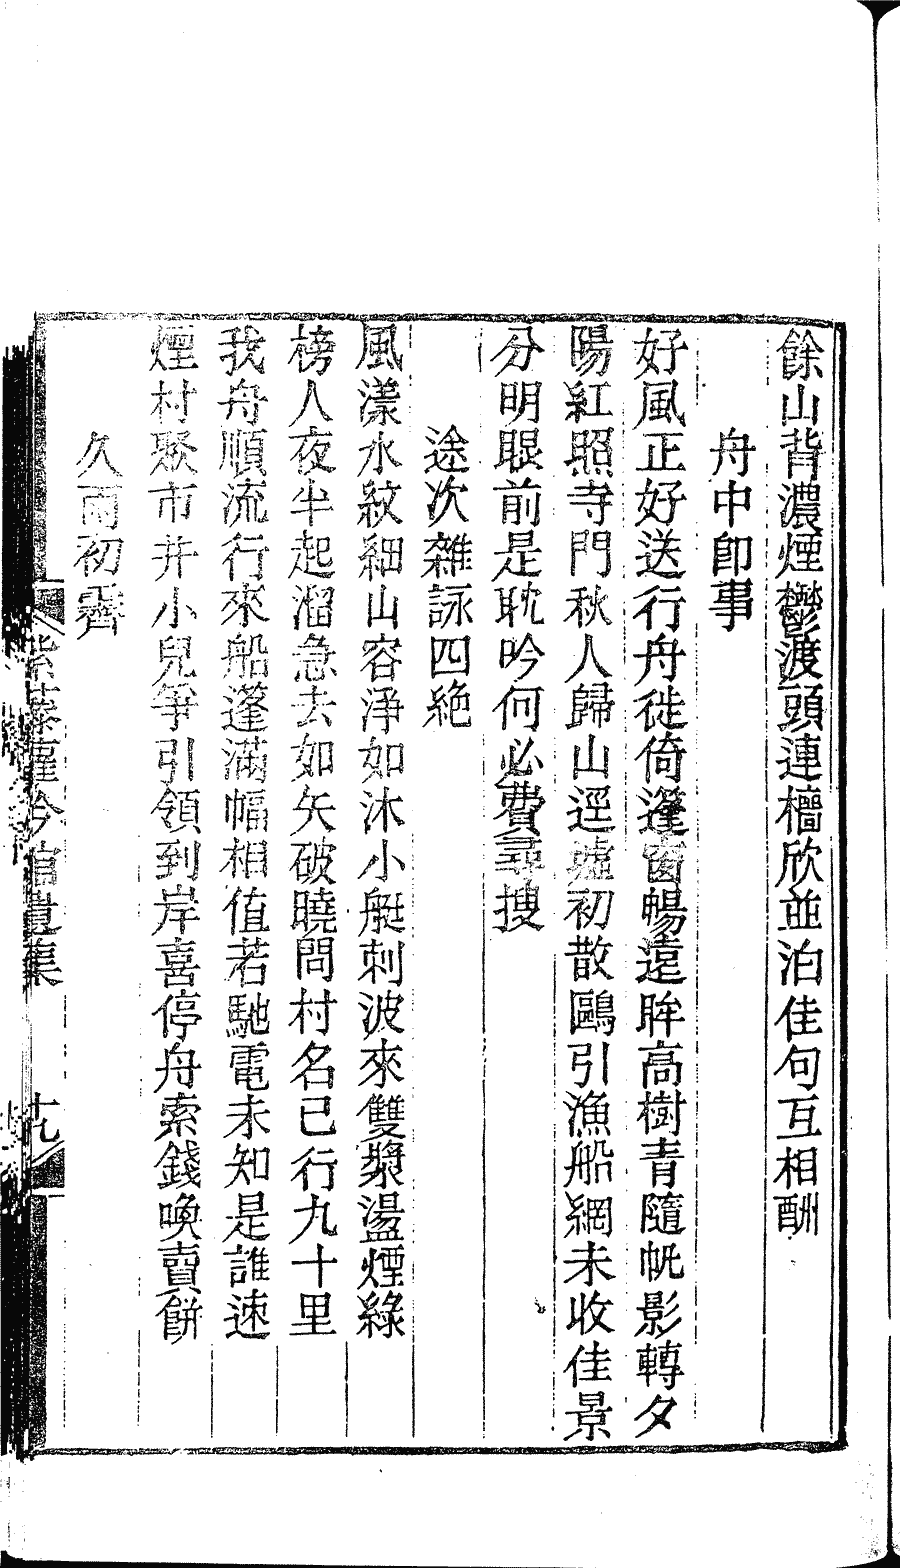 餘山背濃煙鬱渡頭連檣欣並泊佳句互相酬
舟中卽事
好風正好送行舟徙倚篷窗暢遠眸高樹青隨帆影轉夕
陽紅照寺門秋人歸山逕墟初散鷗引漁船網未收佳景
分明眼前是耽吟何必費尋搜
途次雜詠四絶
風漾水紋細山容淨如沐小艇刺波來雙槳盪煙綠
榜人夜半起溜急去如矢破曉問村名已行九十里
我舟順流行來船篷滿幅相值若馳電未知是誰速
煙村聚市井小兒爭引領到岸喜停舟索錢喚賣餅
久雨初霽
紫藤華吟館遺集
十九